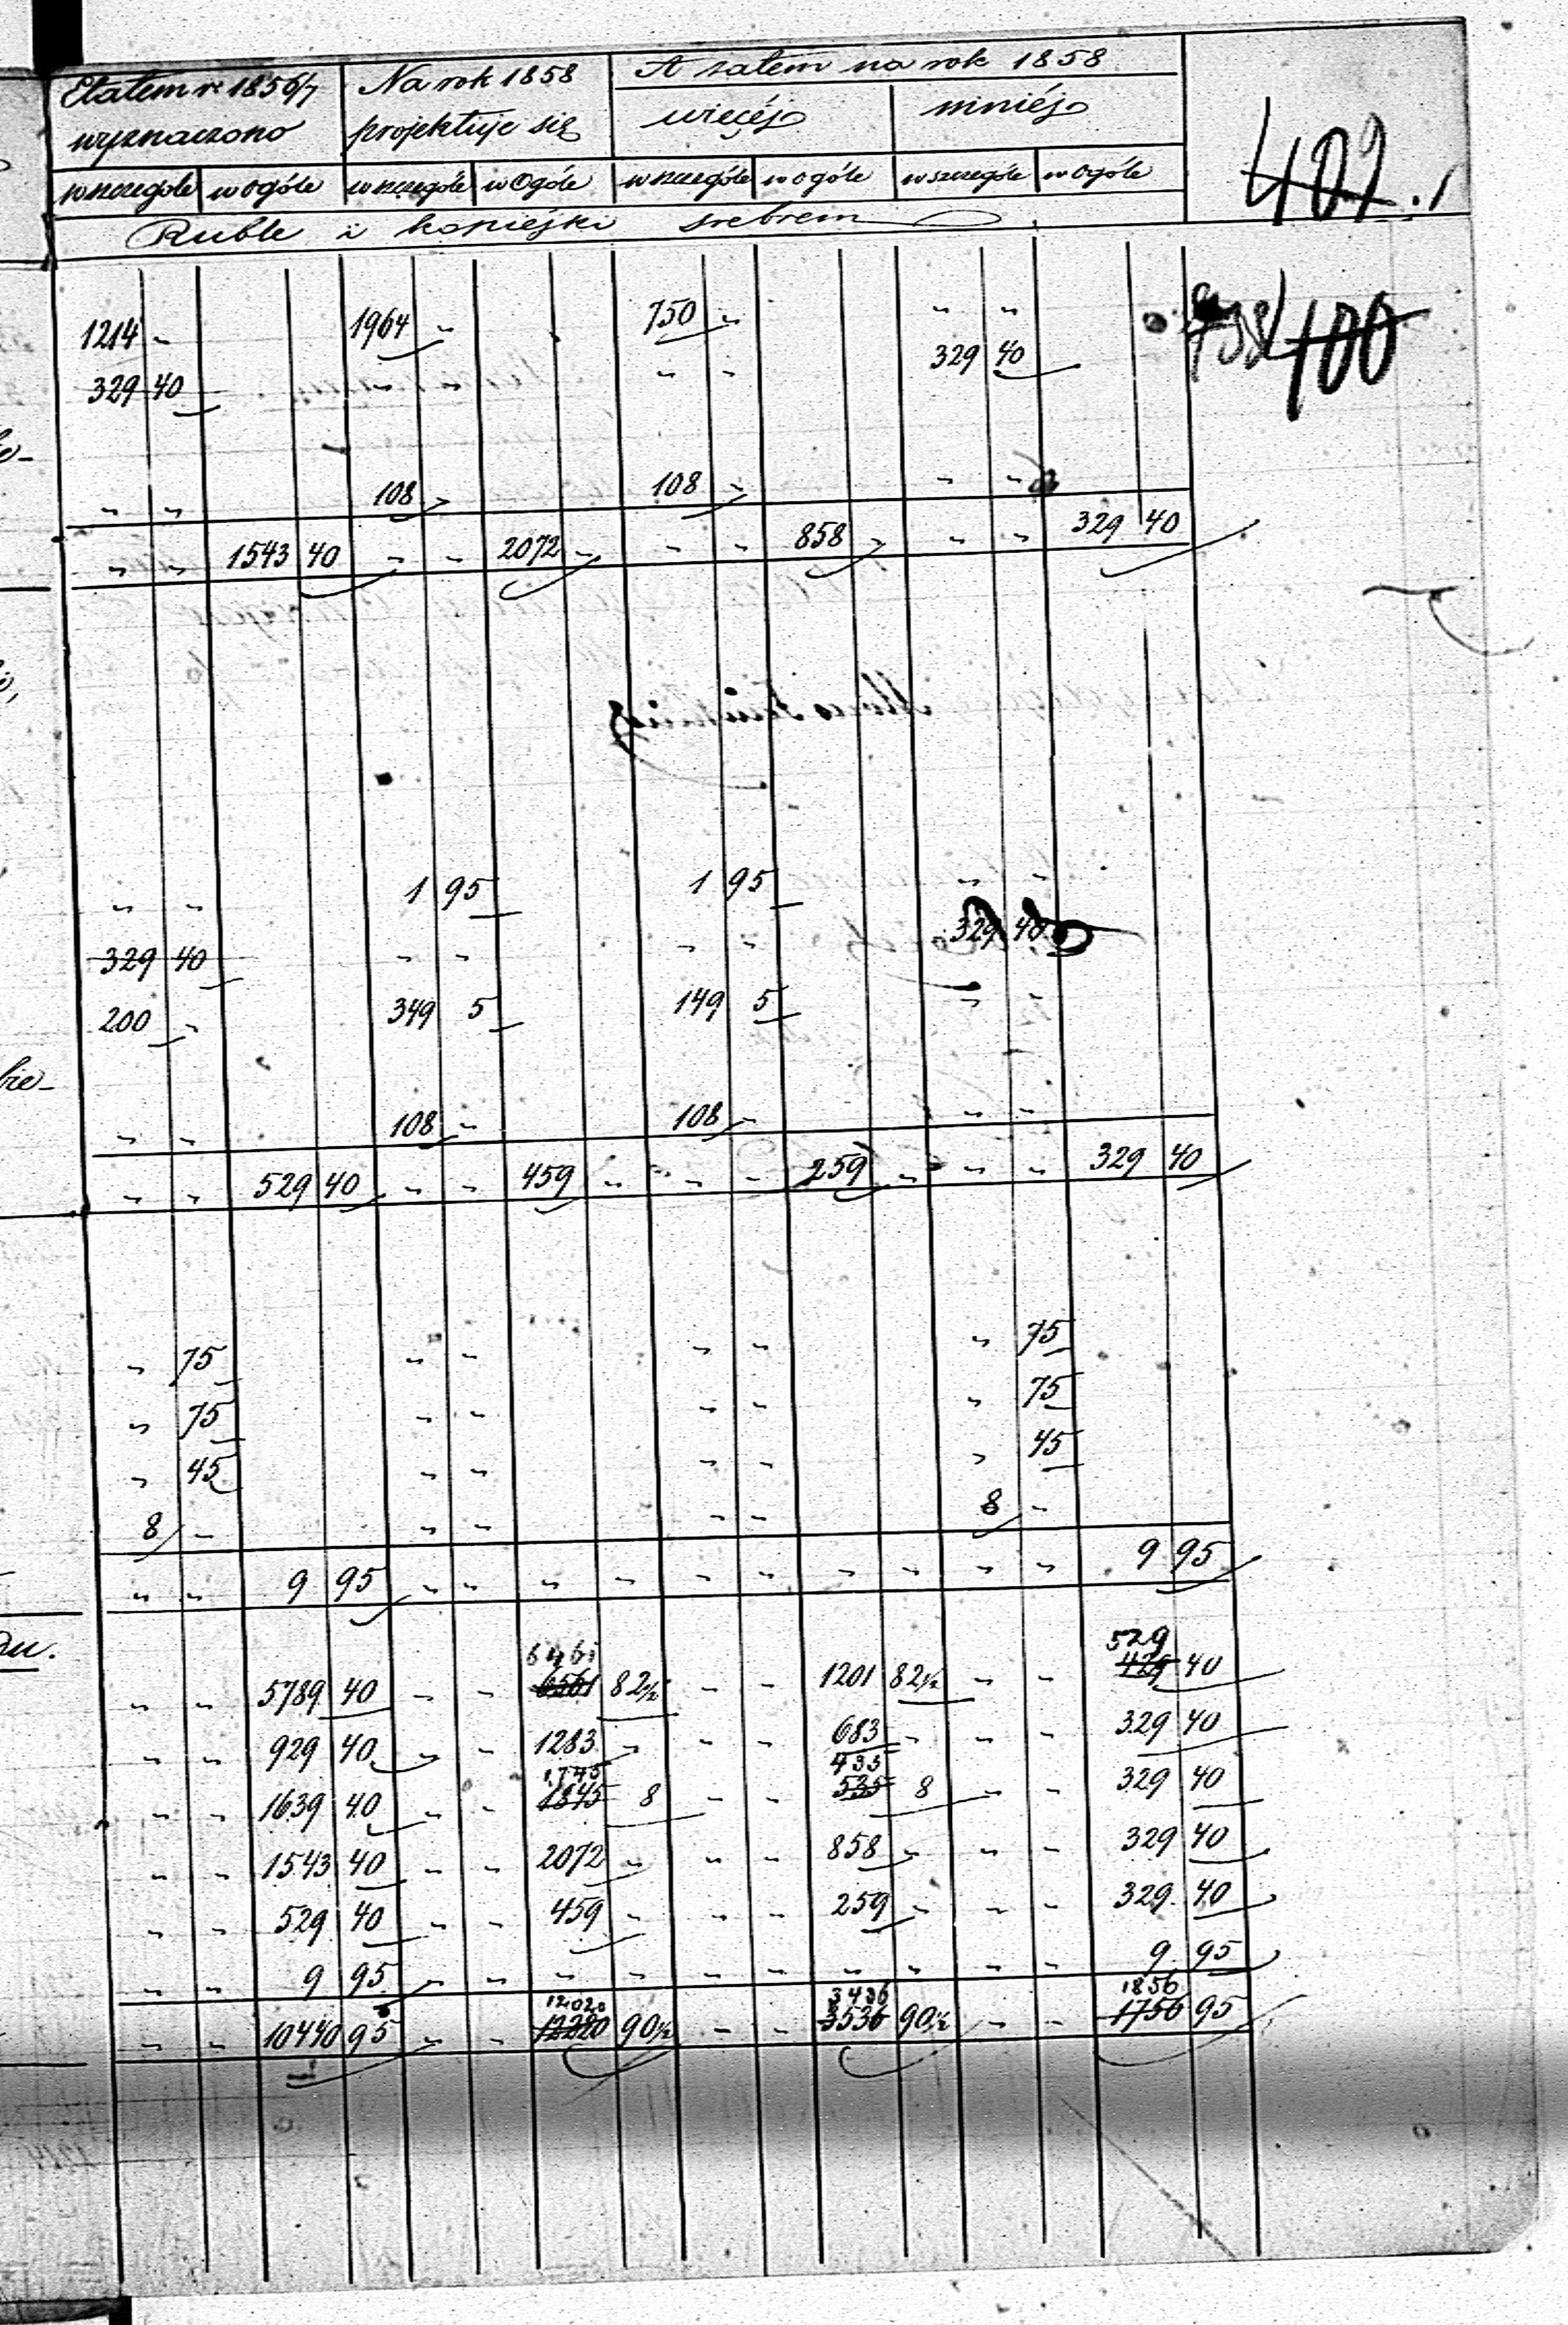 Etatem r. 1856/7 Na rok 1858 A zatem na rok 1858
wyznaczono projektuje się więcéj mniéj
wszczególe w ogóle wszczególe w Ogóle wszczególe w ogóle wszczególe w ogóle
Ruble i kopiejki srebrem
402
400
1214 " 1964 " 750 " " "
329 40 " " " " 329 40
" " 108 " 108 " " "
" " 1543 40 " " 2072 " " " 858 " " " 329 40
" " 1 95 1 95 " "
329 40 " " " " 329 40
200 " 349 5 149 5 " "
bie-
" " 108 " 108 " " "
" " 529 40 " " 459 " " " 259 " " " 329 40
" 75 " " " " " 75
" 75 " " " " " 75
" 45 " " " " " 45
8 " " " " " 8 "
" " 9 95 " " " " " " " " " " 9 95
6461 529
" " 5789 40 " " 6561 82½ " " 1201 82½ " " 429 40
" " 929 40 " " 1283 " " " 683 " " " 329 40
1745 435
" " 1639 40 " " 1845 8 " " 535 8 " " 329 40
" " 1543 40 " " 2072 " " " 858 " " " 329 40
" " 529 40 " " 459 " " " 259 " " " 329 40
" " 9 95 " " " " " " " " " " 9 95
12020 3436 1856
" " 10440 95 " " 90½ " " 3536 90½ " " 1756 95